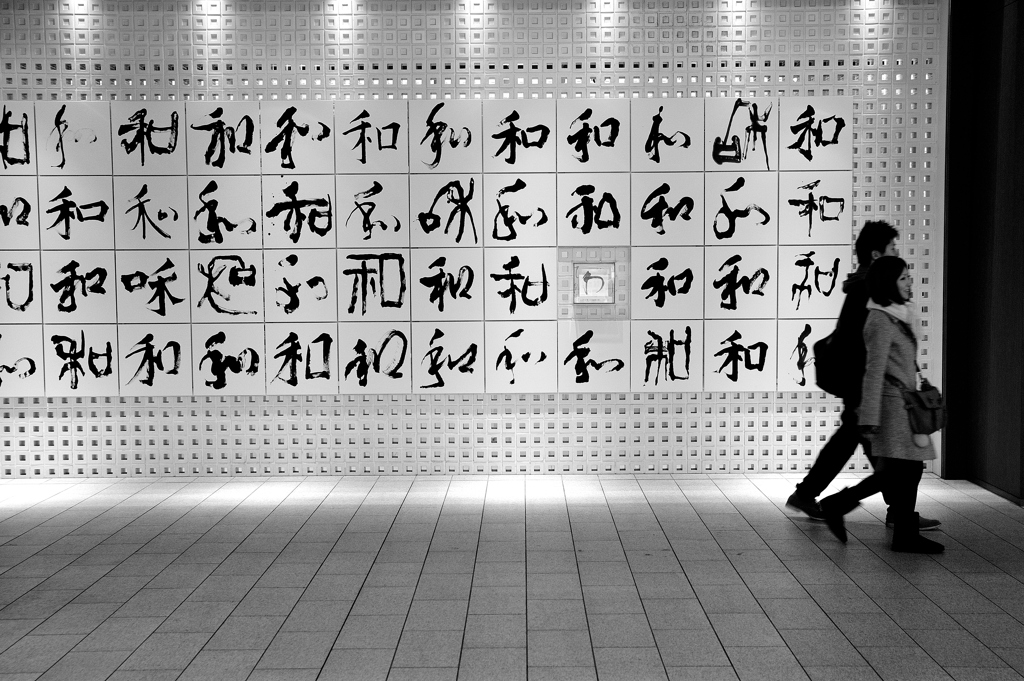 和和和和和和和和和和咊和
和和和和和和咊和和和和和
和和咊和和和和和わ和和和
和和和和和和和和和和和和